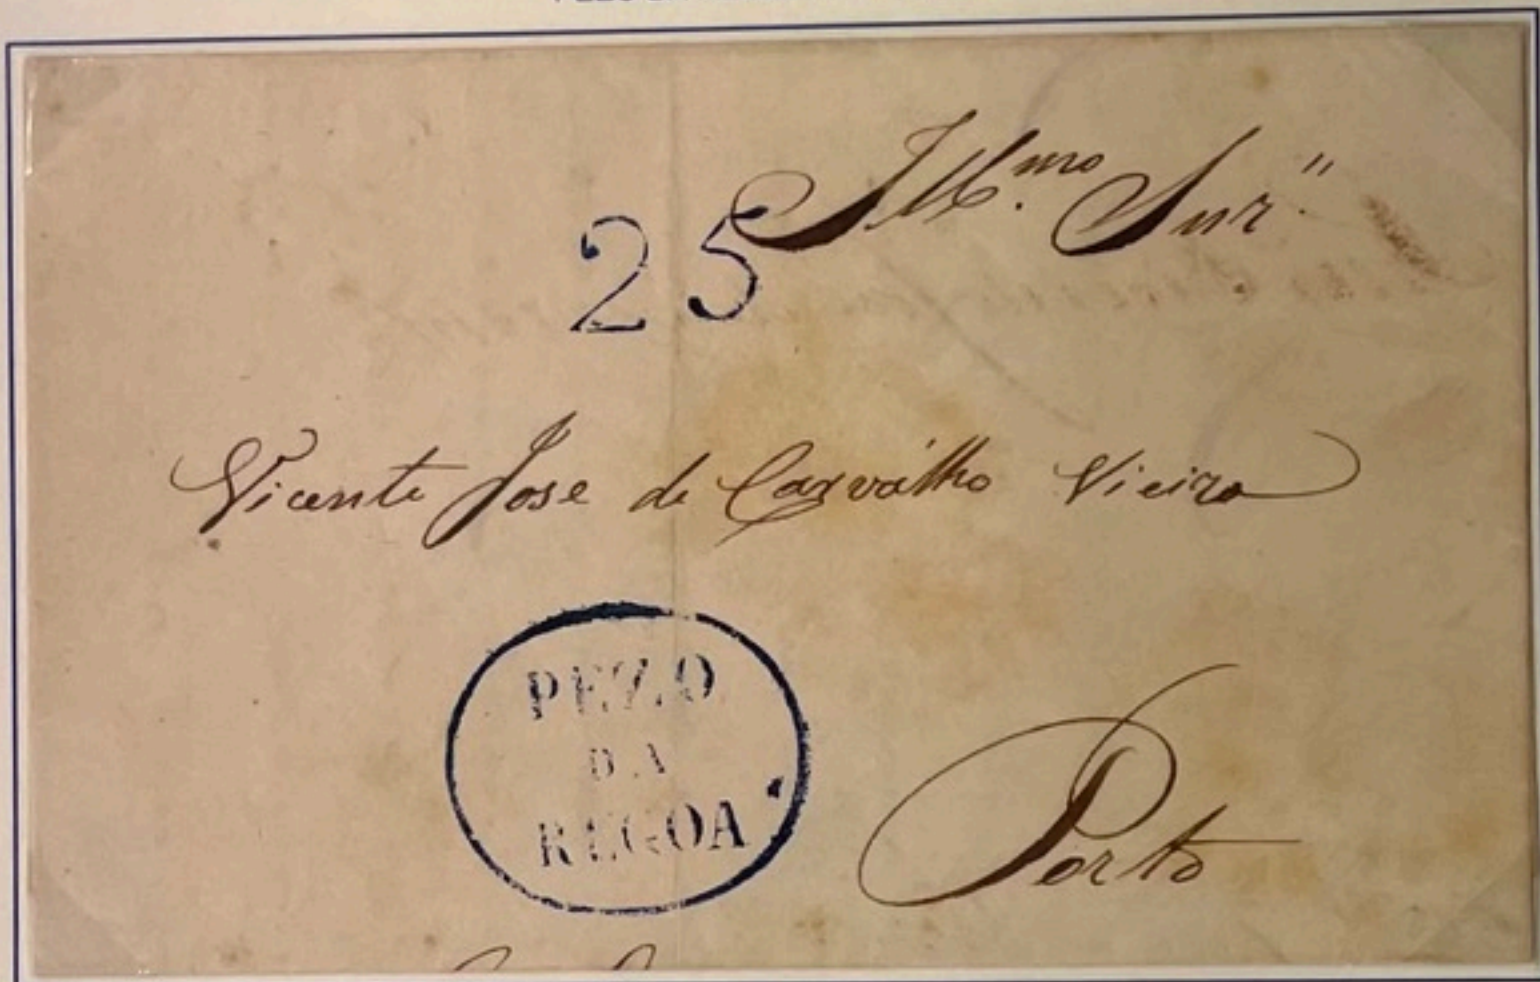 25
Ill.mo Snr"
Vicente Jose de Carvalho Vieira
PEZO
DA
REGOA
Porto